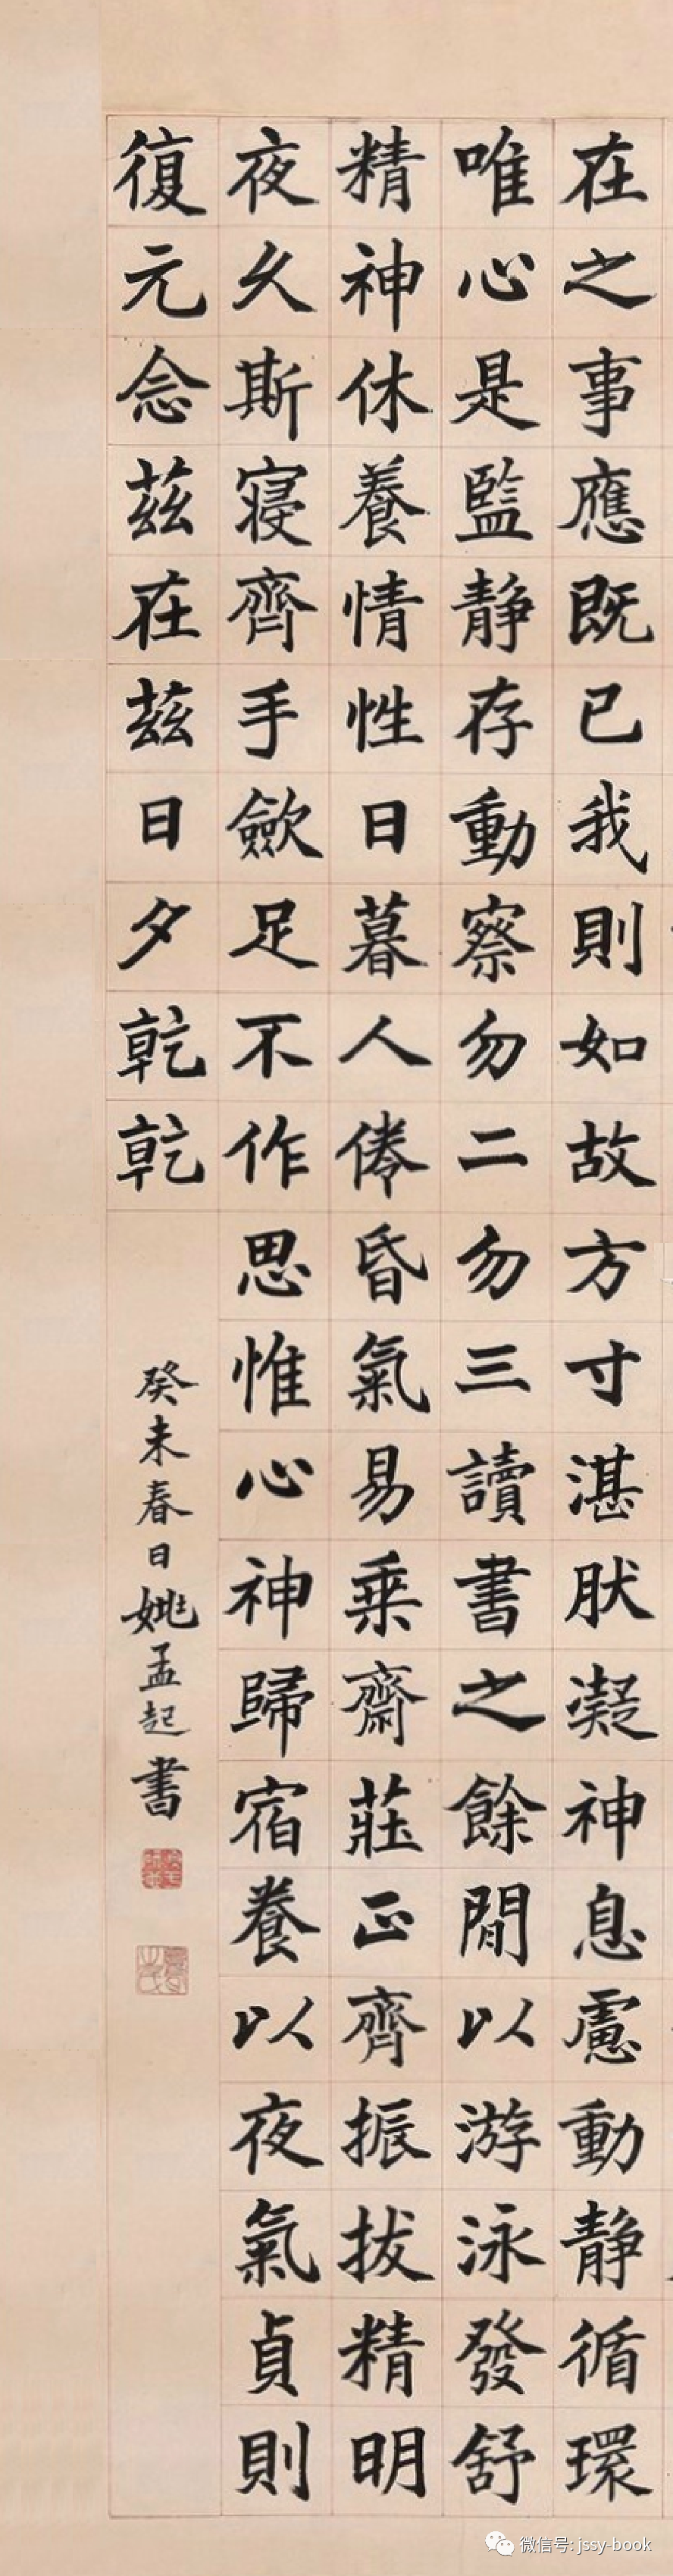 在之事應既已我則如故方寸湛肰凝神息慮動静循環
唯心是監静存動察勿二勿三讀書之餘閒以游泳發舒
精神休養情性日暮人倦昏氣易乗齋莊正齊振拔精明
夜久斯寝齊手歛足不作思惟心神歸宿養以夜氣貞則
復元念茲在茲日夕乾乾
癸未春日姚孟起書
微信号: jssy-book